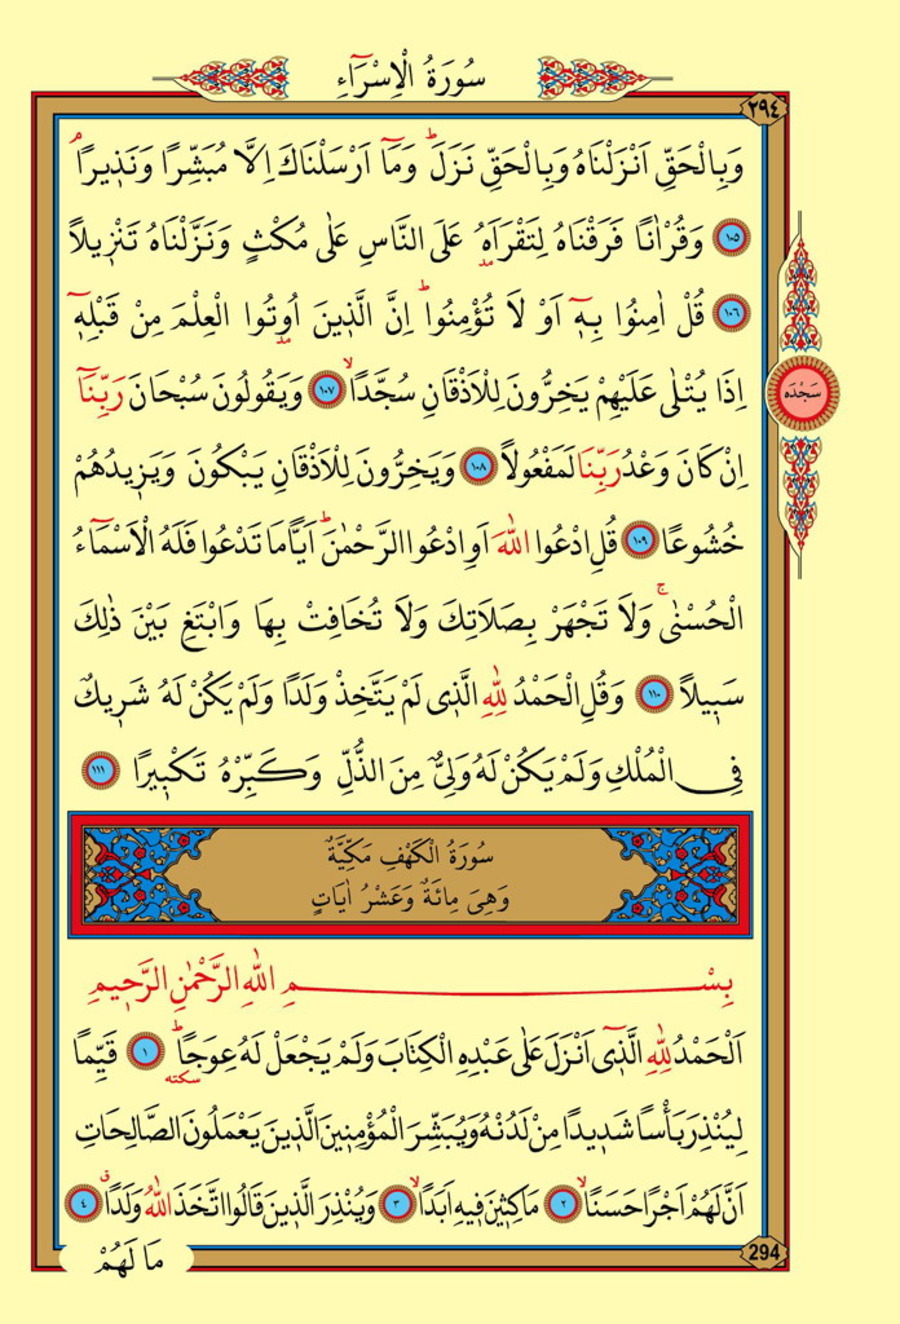 سُورَةُ الْاِسْرَٓاءِ
٢٩٤
وَبِالْحَقِّ اَنْزَلْنَاهُ وَبِالْحَقِّ نَزَلَۜ وَمَٓا اَرْسَلْنَاكَ اِلَّا مُبَشِّرًا وَنَذ۪يرًاۢ
﴿١٠٥﴾ وَقُرْاٰنًا فَرَقْنَاهُ لِتَقْرَاَهُ عَلَى النَّاسِ عَلٰى مُكْثٍ وَنَزَّلْنَاهُ تَنْز۪يلًا
﴿١٠٦﴾ قُلْ اٰمِنُوا بِه۪ٓ اَوْ لَا تُؤْمِنُواۜ اِنَّ الَّذ۪ينَ اُو۫تُوا الْعِلْمَ مِنْ قَبْلِه۪ٓ
اِذَا يُتْلٰى عَلَيْهِمْ يَخِرُّونَ لِلْاَذْقَانِ سُجَّدًاۙ ﴿١٠٧﴾ وَيَقُولُونَ سُبْحَانَ رَبِّنَٓا
سَجْدَه
اِنْ كَانَ وَعْدُ رَبِّنَا لَمَفْعُولًا ﴿١٠٨﴾ وَيَخِرُّونَ لِلْاَذْقَانِ يَبْكُونَ وَيَز۪يدُهُمْ
خُشُوعًا ﴿١٠٩﴾ قُلِ ادْعُوا اللّٰهَ اَوِ ادْعُوا الرَّحْمٰنَۜ اَيًّامَا تَدْعُوا فَلَهُ الْاَسْمَٓاءُ
الْحُسْنٰىۚ وَلَا تَجْهَرْ بِصَلَاتِكَ وَلَا تُخَافِتْ بِهَا وَابْتَغِ بَيْنَ ذٰلِكَ
سَب۪يلًا ﴿١١٠﴾ وَقُلِ الْحَمْدُ لِلّٰهِ الَّذ۪ى لَمْ يَتَّخِذْ وَلَدًا وَلَمْ يَكُنْ لَهُ شَر۪يكٌ
فِى الْمُلْكِ وَلَمْ يَكُنْ لَهُ وَلِىٌّ مِنَ الذُّلِّ وَكَبِّرْهُ تَكْب۪يرًا ﴿١١١﴾
سُورَةُ الْكَهْفِ مَكِّيَّةٌ
وَهِىَ مِائَةٌ وَعَشْرُ اٰيَاتٍ
بِسْمِ اللّٰهِ الرَّحْمٰنِ الرَّح۪يمِ
اَلْحَمْدُ لِلّٰهِ الَّذ۪ٓى اَنْزَلَ عَلٰى عَبْدِهِ الْكِتَابَ وَلَمْ يَجْعَلْ لَهُ عِوَجًاۜ سكته ﴿١﴾ قَيِّمًا
لِيُنْذِرَ بَأْسًا شَد۪يدًا مِنْ لَدُنْهُ وَيُبَشِّرَ الْمُؤْمِن۪ينَ الَّذ۪ينَ يَعْمَلُونَ الصَّالِحَاتِ
اَنَّ لَهُمْ اَجْرًا حَسَنًاۙ ﴿٢﴾ مَاكِث۪ينَ ف۪يهِ اَبَدًاۙ ﴿٣﴾ وَيُنْذِرَ الَّذ۪ينَ قَالُوا اتَّخَذَ اللّٰهُ وَلَدًاۗ ﴿٤﴾
مَا لَهُمْ
294